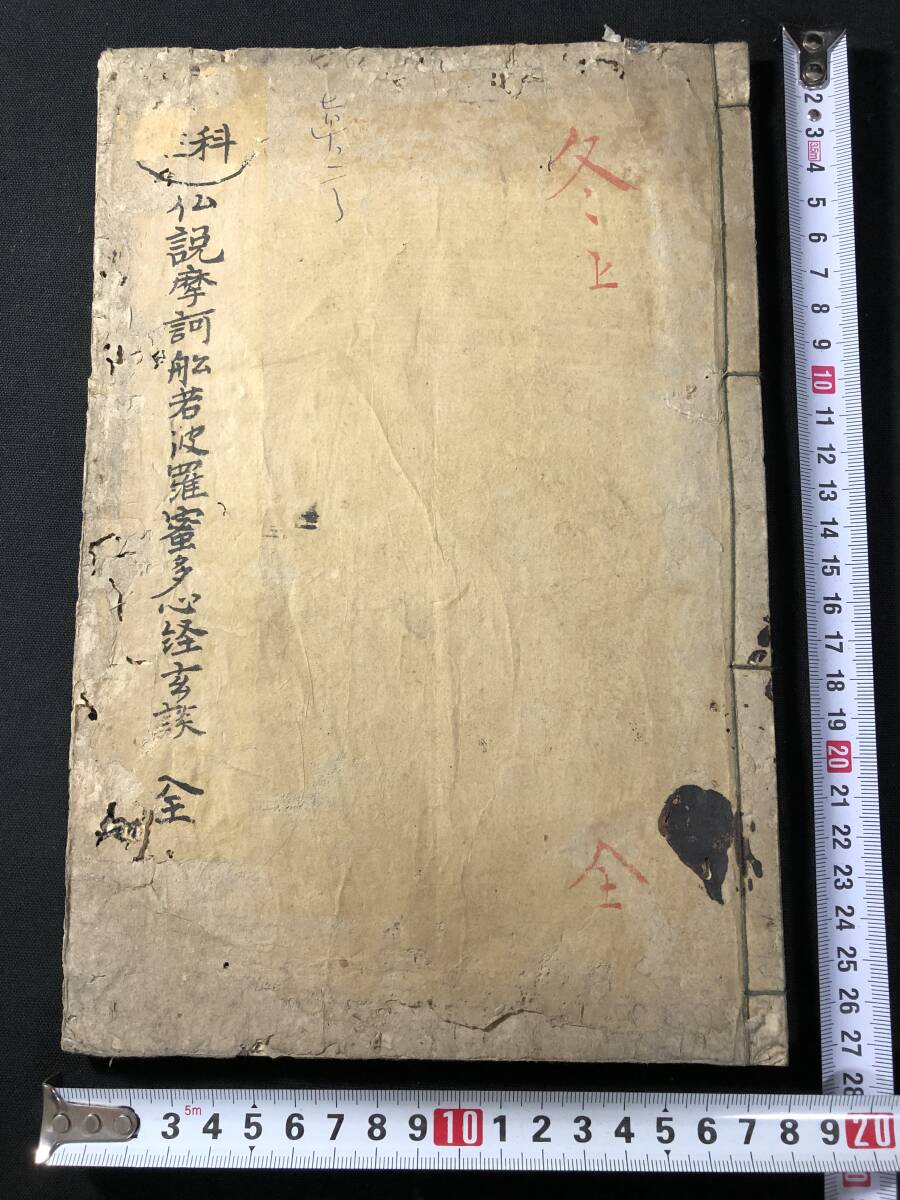 冬、上
全
科
仏説摩訶般若波羅蜜多心経玄談 全
2 3 3.5m 4 5 6 7 8 9 10 11 12 13 14 15 16 17 18 19 20 21 22 23 24 25 26 27 28
3 5m 4 5 6 7 8 9 10 1 2 3 4 5 6 7 8 9 20